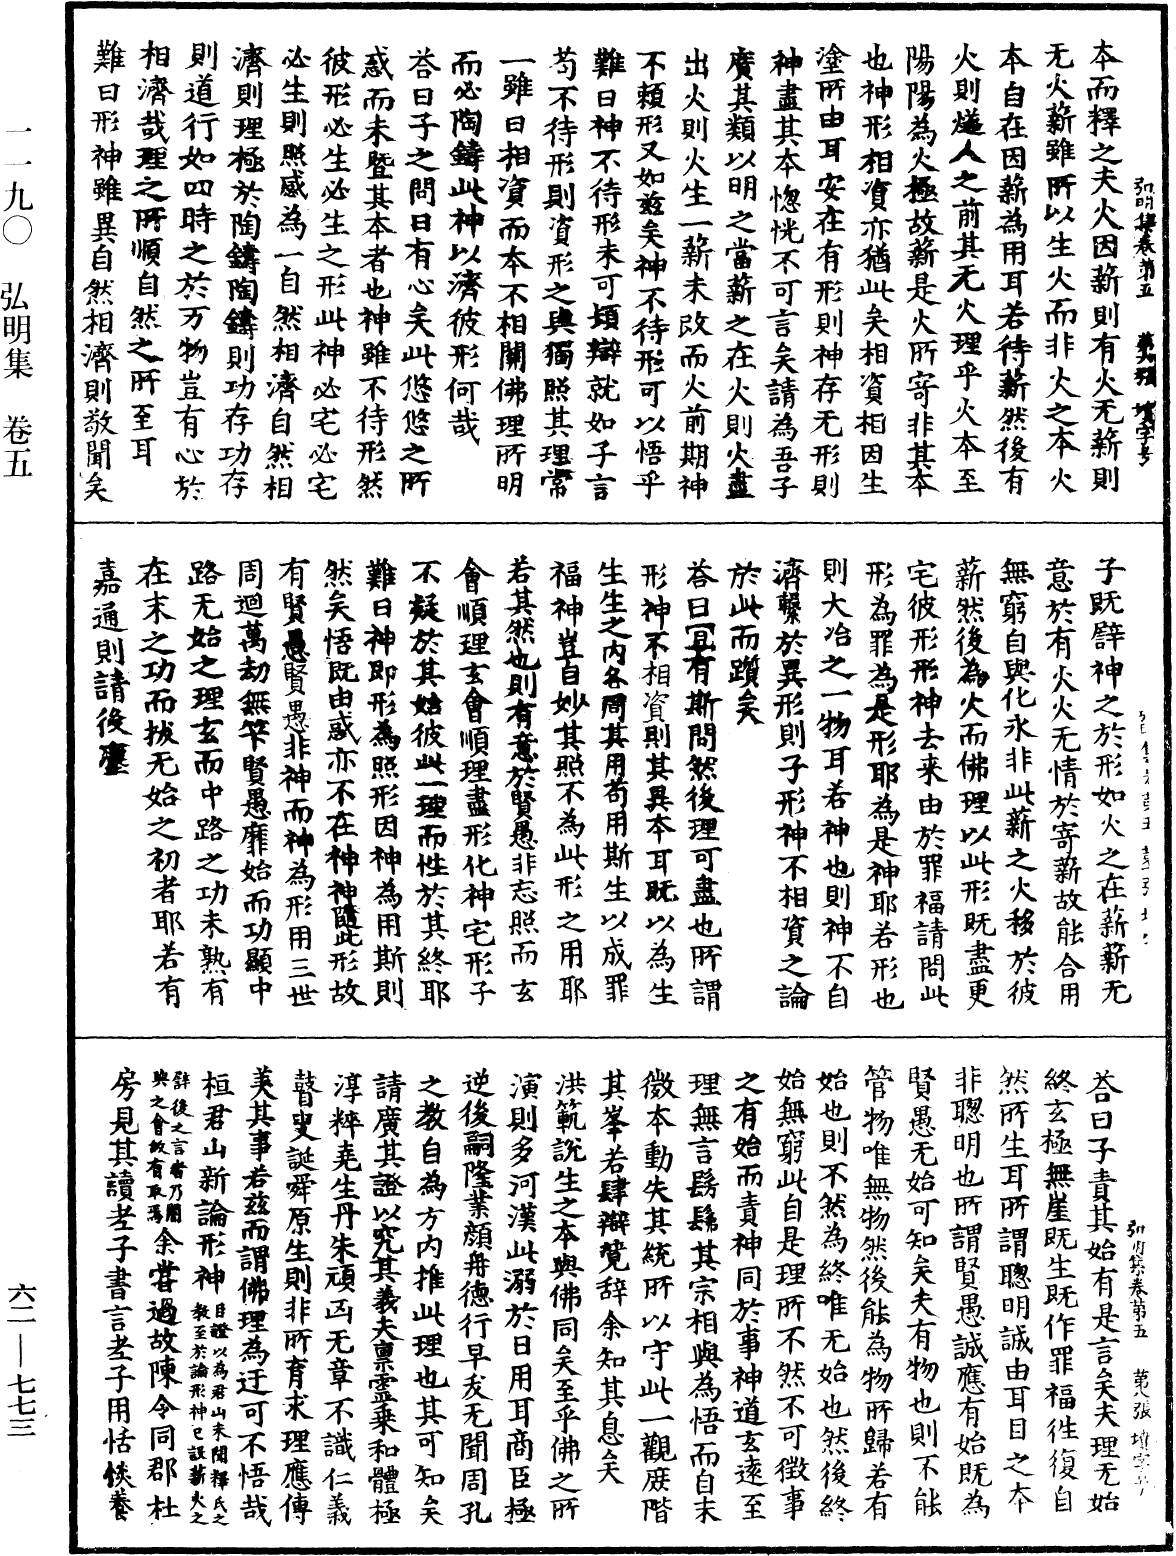 弘明集卷第五　第六張　墳字号
本而釋之夫火因薪則有火无薪則
无火薪雖所以生火而非火之本火
本自在因薪為用耳若待薪然後有
火則燧人之前其无火理乎火本至
陽陽為火極故薪是火所寄非其本
也神形相資亦猶此矣相資相因生
塗所由耳安在有形則神存无形則
神盡其本惚恍不可言矣請為吾子
廣其類以明之當薪之在火則火盡
出火則火生一薪未改而火前期神
不賴形又如兹矣神不待形可以悟乎
難曰神不待形未可頓辯就如子言
苟不待形則資形之與獨照其理常
一雖曰相資而本不相關佛理所明
而必陶鑄此神以濟彼形何哉
荅曰子之問日有心矣此悠悠之所
惑而未暨其本者也神雖不待形然
彼形必生必生之形此神必宅必宅
必生則照感為一自然相濟自然相
濟則理極於陶鑄陶鑄則功存功存
則道行如四時之於万物豈有心於
相濟哉理之所順自然之所至耳
難曰形神雖異自然相濟則敬聞矣
一一九〇　弘明集　卷五
子既譬神之於形如火之在薪薪无
意於有火火无情於寄薪故能合用
無窮自與化永非此薪之火移於彼
薪然後為火而佛理以此形既盡更
宅彼形形神去来由於罪福請問此
形為罪為是形耶為是神耶若形也
則大冶之一物耳若神也則神不自
濟繫於異形則子形神不相資之論
於此而躓矣
荅曰宜有斯問然後理可盡也所謂
形神不相資則其異本耳既以為生
生生之内各周其用苟用斯生以成罪
福神豈自妙其照不為此形之用耶
若其然也則有意於賢愚非忘照而玄
會順理玄會順理盡形化神宅形子
不疑於其始彼此一理而性於其終耶
難曰神即形為照形因神為用斯則
然矣悟既由惑亦不在神神隨此形故
有賢愚賢愚非神而神為形用三世
周迴萬劫無竿賢愚靡始而功顯中
路无始之理玄而中路之功未熟有
在末之功而拔无始之初者耶若有
嘉通則請後塵
弘明集卷第五　第八張　墳字号
荅曰子責其始有是言矣夫理无始
終玄極無崖既生既作罪福往復自
然所生耳所謂聰明誠由耳目之本
非聰明也所謂賢愚誠應有始既為
賢愚无始可知矣夫有物也則不能
管物唯無物然後能為物所歸若有
始也則不然為終唯无始也然後終
始無窮此自是理所不然不可徵事
之有始而責神同於事神道玄遠至
理無言髣髴其宗相與為悟而自末
徵本動失其統所以守此一觀庶階
其峯若肆辯覓辞余知其息矣
洪範說生之本與佛同矣至乎佛之所
演則多河漢此溺於日用耳商臣極
逆後嗣隆業顏舟德行早夭无聞周孔
之教自為方内推此理也其可知矣
請廣其證以究其義夫禀靈乗和體極
淳粹堯生丹朱頑凶无章不識仁義
瞽叟誕舜原生則非所育求理應傳
美其事若兹而謂佛理為迂可不悟哉
桓君山新論形神 臣證以為君山未聞釋氏之
教至於論形神已設薪火之
譬後之言者乃闇
與之會故有取焉 余嘗過故陳令同郡杜
房見其讀老子書言老子用恬惔養
六二—七七三